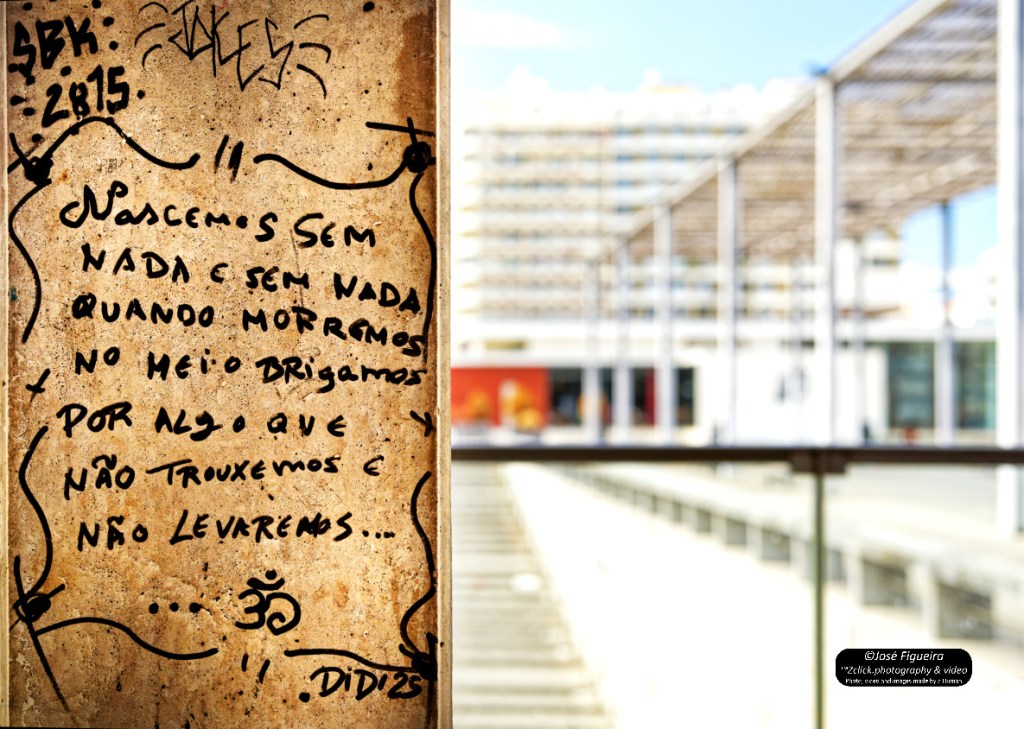 SBK
2815
JOKES
Nascemos SEM
NADA E SEM NADA
QUANDO MORREMOS
NO MEiO BRigamos
POR ALgo QUE
NÃO TROUXEmOS E
NÃO LEVAREMOS...
... ॐ
.DiDi25
©José Figueira
™Zclick.photography & video
Photo, video and images made by a Human